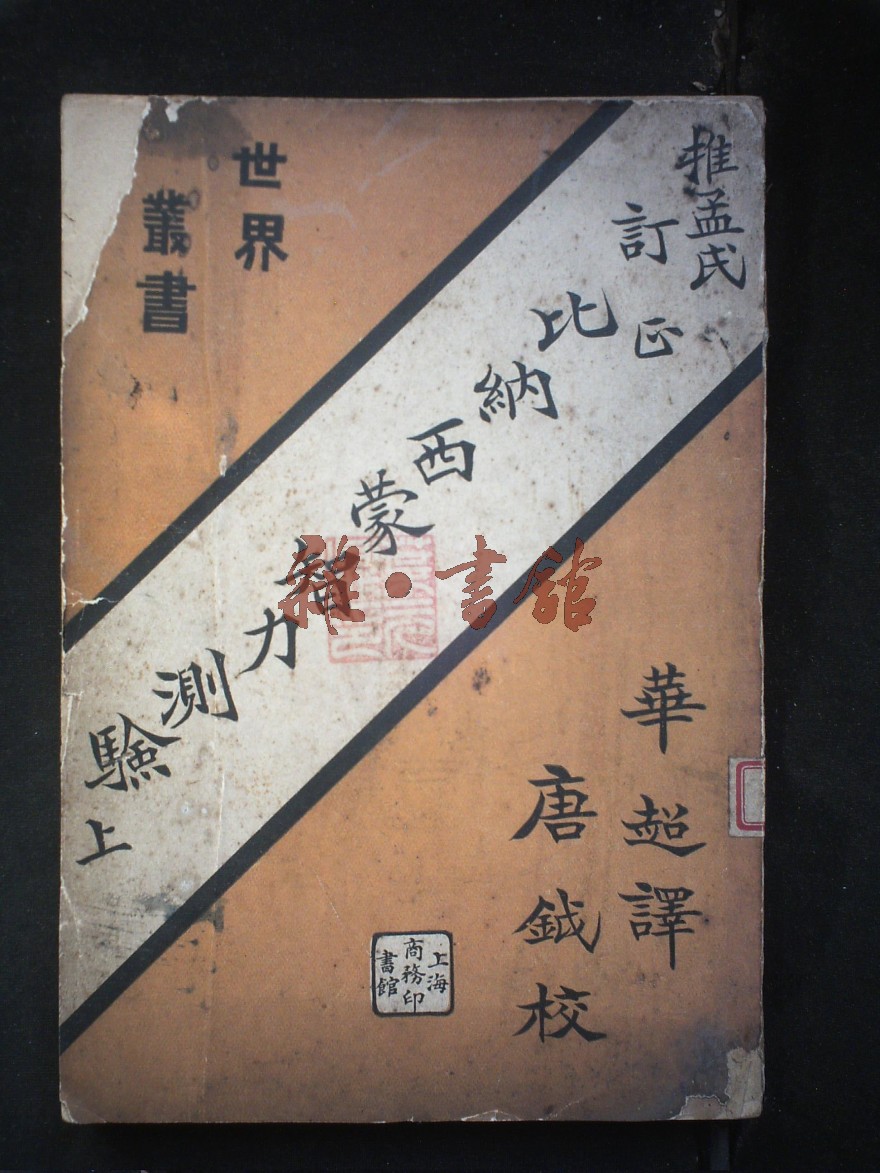 世界
叢書
推孟氏
訂正
比納西蒙智力測驗上
華超譯
唐鉞校
上海
商務印
書館
雜·書館